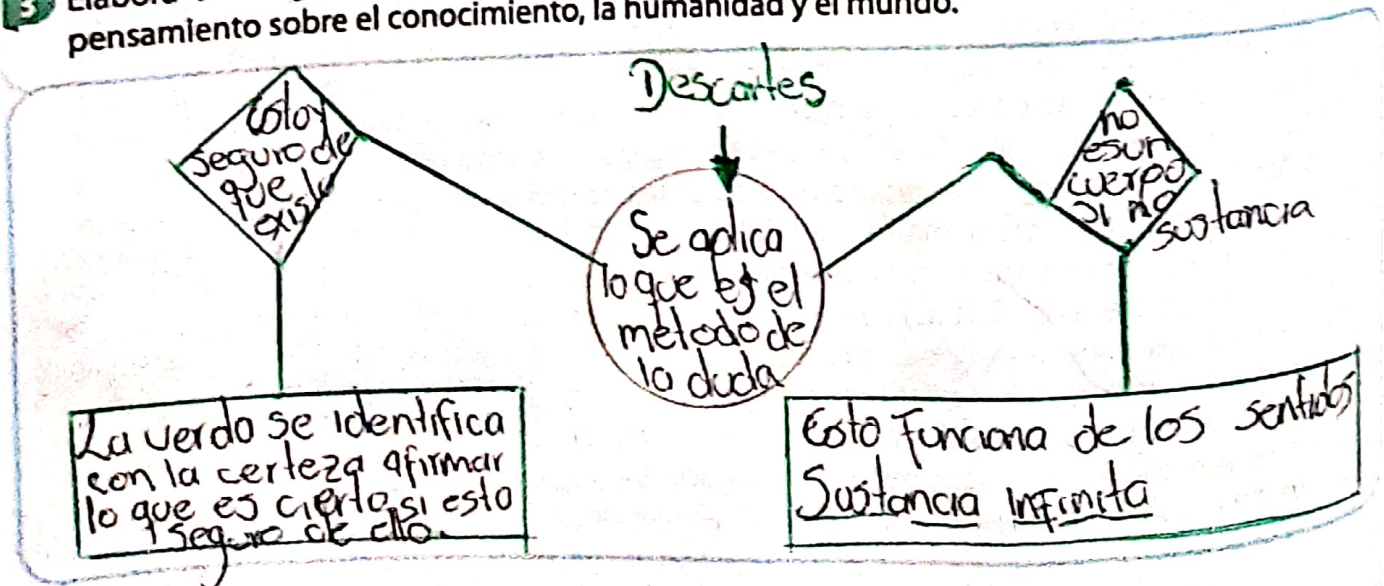 3
pensamiento sobre el conocimiento, la humanidad y el mundo.
Descartes
Estoy
seguro de
que
existo
Se aplica
lo que es el
metodo de
la duda
no
es un
cuerpo
si no
sustancia
La verda se identifica
con la certeza afirmar
lo que es cierto si esto
y seguro de ello.
Esto Funciona de los sentidos
Sustancia infinita